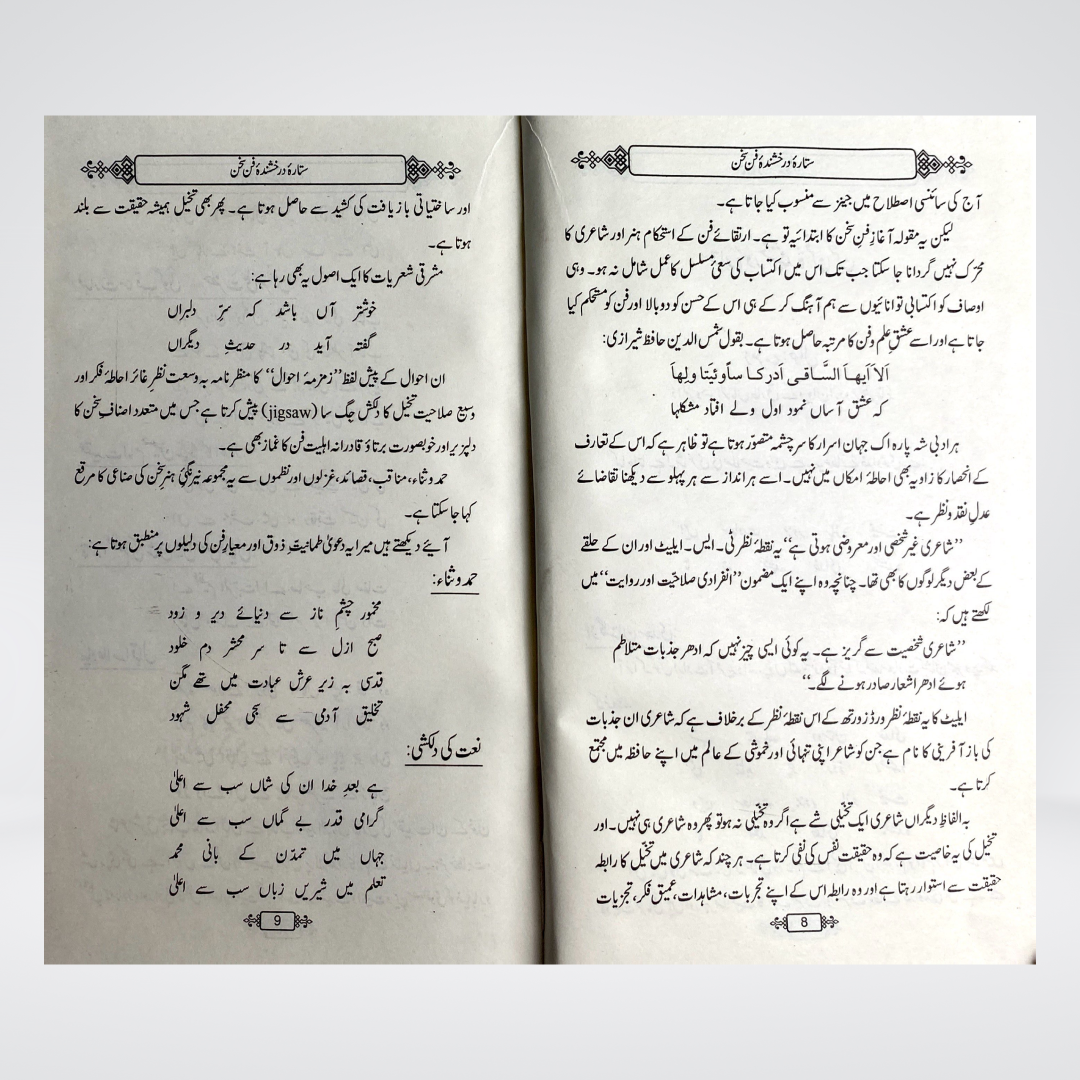 ستارۂ درخشندۂ فن سخن
آج کی سائنسی اصطلاح میں جینز سے منسوب کیا جاتا ہے۔
لیکن یہ مقولہ آغازِ فنِ سخن کا ابتدائیہ تو ہے۔ ارتقائے فن کے استحکام ہنر اور شاعری کا
محرّک نہیں گردانا جا سکتا جب تک اس میں اکتساب کی سعیٔ مسلسل کا عمل شامل نہ ہو۔ وہی
اوصاف کو اکتسابی توانائیوں سے ہم آہنگ کر کے ہی اس کے حسن کو دوبالا اور فن کو مستحکم کیا
جاتا ہے اور اسے عشقِ علم و فن کا مرتبہ حاصل ہوتا ہے۔ بقول شمس الدین حافظ شیرازی:
اَلاَ اَیھاَ السَّاقی اَدَر کا ساً وِنَاوِلها
کہ عشق آساں نمود اول ولے افتاد مشکلہا
ہر ادبی شہ پارہ اک جہانِ اسرار کا سرچشمہ متصوّر ہوتا ہے تو ظاہر ہے کہ اس کے تعارف
کے انحصار کا زاویہ بھی احاطۂ امکاں میں نہیں۔ اسے ہر انداز سے ہر پہلو سے دیکھنا تقاضائے
عدلِ نقد و نظر ہے۔
’’شاعری غیر شخصی اور معروضی ہوتی ہے‘‘ یہ نقطۂ نظر ٹی۔ ایس۔ ایلیٹ اور ان کے حلقے
کے بعض دیگر لوگوں کا بھی تھا۔ چنانچہ وہ اپنے ایک مضمون ’’انفرادی صلاحیّت اور روایت‘‘ میں
لکھتے ہیں کہ:
’’شاعری شخصیت سے گریز ہے۔ یہ کوئی ایسی چیز نہیں کہ ادھر جذبات متلاطم
ہوئے ادھر اشعار صادر ہونے لگے۔‘‘
ایلیٹ کا یہ نقطۂ نظر ورڈزورتھ کے اس نقطۂ نظر کے برخلاف ہے کہ شاعری ان جذبات
کی باز آفرینی کا نام ہے جن کو شاعر اپنی تنہائی اور خموشی کے عالم میں اپنے حافظہ میں مجتمع
کرتا ہے۔
بہ الفاظِ دیگراں شاعری ایک تخیّلی شے ہے اگر وہ تخیّلی نہ ہو تو پھر وہ شاعری ہی نہیں۔ اور
تخیل کی یہ خاصیت ہے کہ وہ حقیقت نفس کی نفی کرتا ہے۔ ہر چند کہ شاعری میں تخیّل کا رابطہ
حقیقت سے استوار رہتا ہے اور وہ رابطہ اس کے اپنے تجربات، مشاہدات، عمیق فکر، تجزیات
8
ستارۂ درخشندۂ فن سخن
اور ساختیاتی بازیافت کی کشید سے حاصل ہوتا ہے۔ پھر بھی تخیل ہمیشہ حقیقت سے بلند
ہوتا ہے۔
مشرقی شعریات کا ایک اصول یہ بھی رہا ہے:
خوشتر آں باشد کہ سرّ دلبراں
گفتہ آید در حدیثِ دیگراں
ان احوال کے پیش لفظ ’’زمزمۂ احوال‘‘ کا منظرنامہ بہ وسعت نظرِ غائر احاطۂ فکر اور
وسیع صلاحیت تخیل کا دلکش جگ سا (jigsaw) پیش کرتا ہے جس میں متعدد اصنافِ سخن کا
دلپزیر اور خوبصورت برتاؤ قادرانہ اہلیت فن کا غماز بھی ہے۔
حمد و ثناء، مناقب، قصائد، غزلوں اور نظموں سے یہ مجموعہ نیرنگیٔ ہنرِ سخن کی صناعی کا مرقع
کہا جا سکتا ہے۔
آیئے دیکھتے ہیں میرا یہ دعویٰ طمانیتِ ذوق اور معیارِ فن کی دلیلوں پر منطبق ہوتا ہے:
حمد و ثناء:
مخمور چشمِ ناز سے دنیائے دیر و زود
صبح ازل سے تا سر محشر دم خلود
قدسی بہ زیر عرش عبادت میں تھے مگن
تخلیق آدمی سے سجی محفل شہود
نعت کی دلکشی:
ہے بعدِ خدا ان کی شاں سب سے اعلیٰ
گرامی قدر بے گماں سب سے اعلیٰ
جہاں میں تمدّن کے بانی محمد
تعلم میں شیریں زباں سب سے اعلیٰ
9